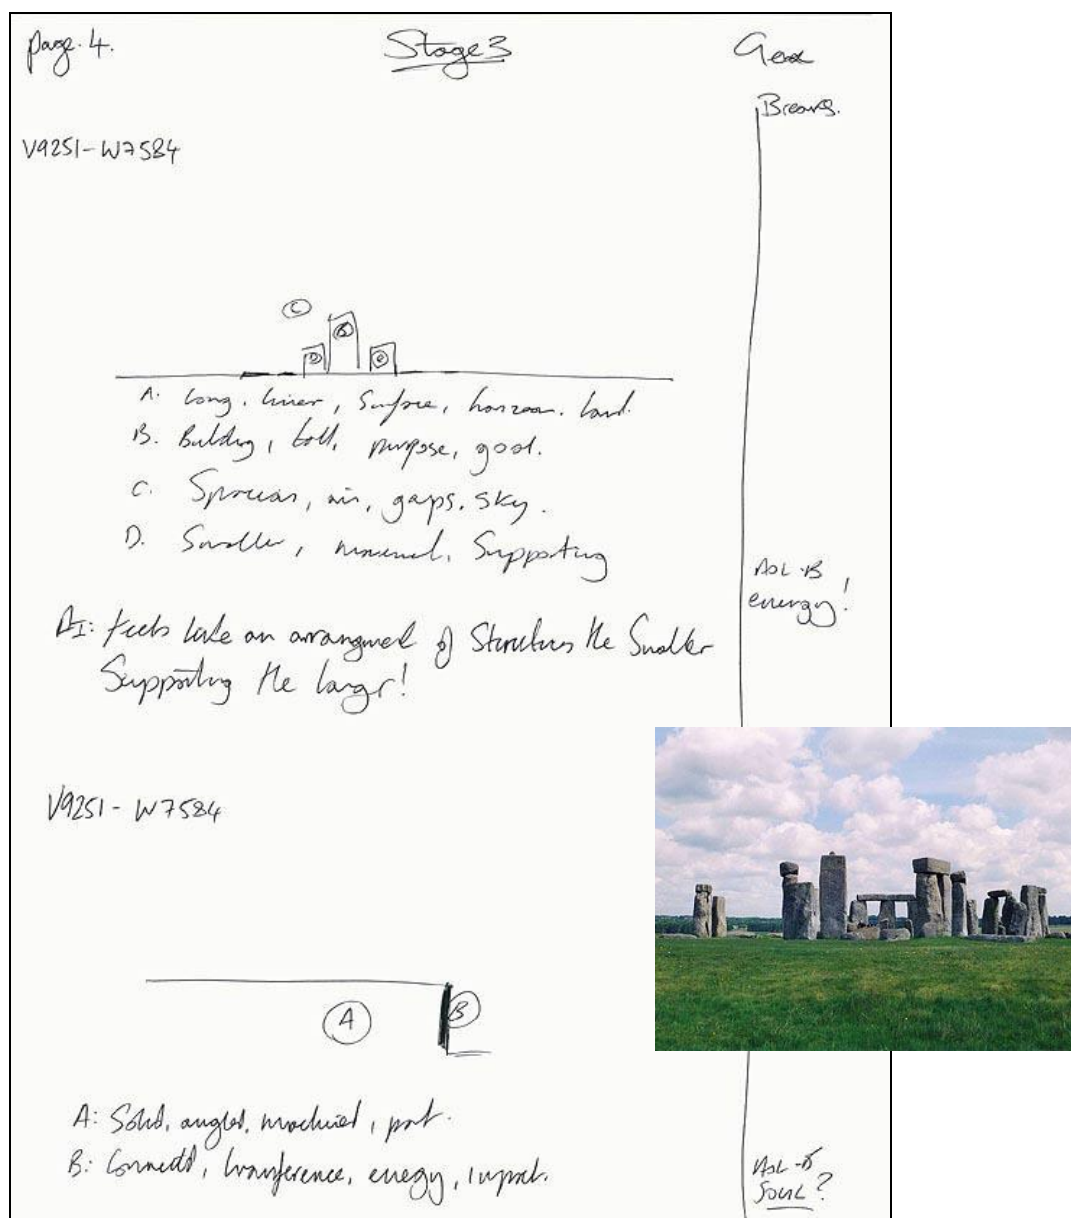 page. 4.
Stage 3
Breaks.
V9251-W7584
C
B
D
A. Long, linear, Surface, horizon. land.
B. Building, tall, purpose, good.
C. Spacious, air, gaps, sky.
D. Smaller, Supporting
AOL-B
energy!
AI: feels like an arrangment of Structures the Smaller
Supporting the larger!
V9251 - W7584
A
B
A: Solid, angled, machined, part.
B: Connects, transference, energy, impact.
AOL-B